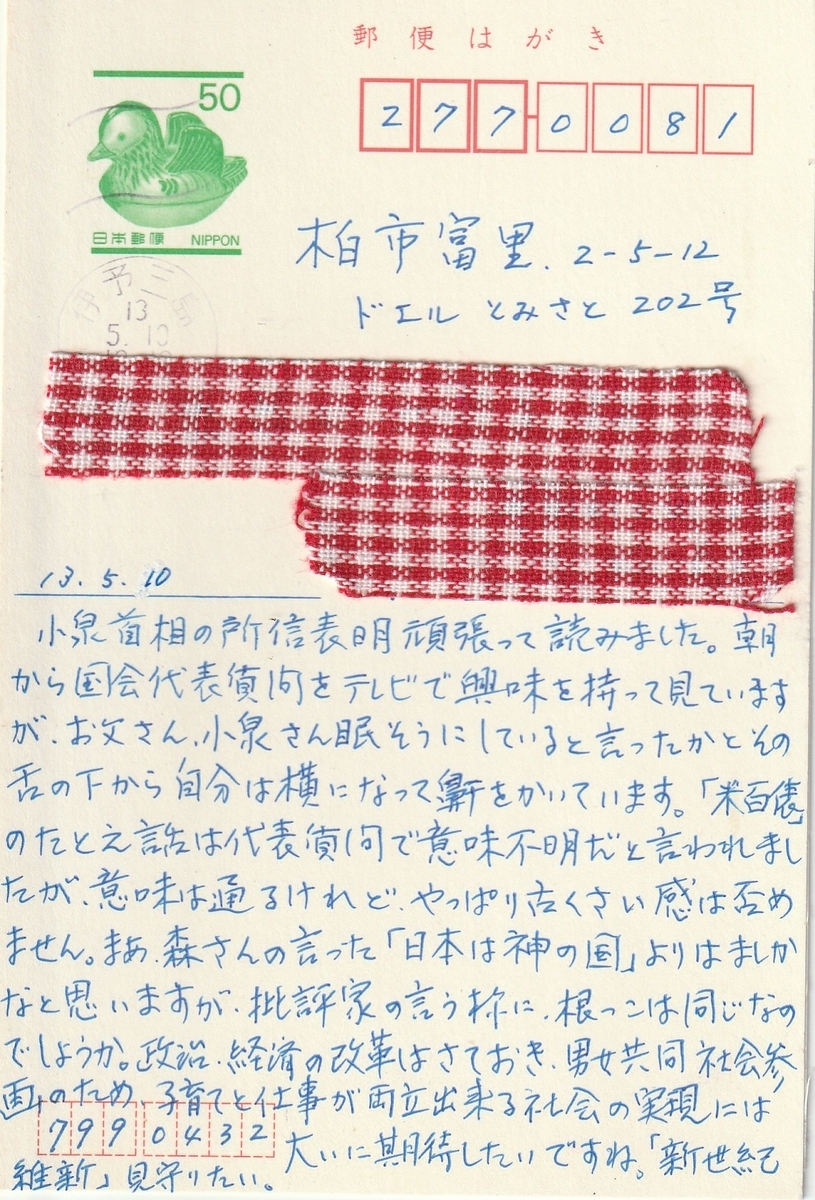 郵便はがき
50
277-0081
日本郵便 NIPPON
柏市富里、2-5-12
ドエル とみさと 202号
伊予三島
13
5.10
13.5.10
小泉首相の所信表明頑張って読みました。朝
から国会代表質問をテレビで興味を持って見ています
が、お父さん、小泉さん眠そうにしていると言ったかとその
舌の下から自分は横になって鼾をかいています。「米百俵」
のたとえ話は代表質問で意味不明だと言われまし
たが、意味は通るけれど、やっぱり古くさい感は否め
ません。まあ、森さんの言った「日本は神の国」よりはましか
なと思いますが、批評家の言う様に、根っこは同じなの
でしょうか。政治、経済の改革はさておき、男女共同社会参
画のため、子育てと仕事が両立出来る社会の実現には
大いに期待したいですね。「新世紀
維新」見守りたい。
7990432